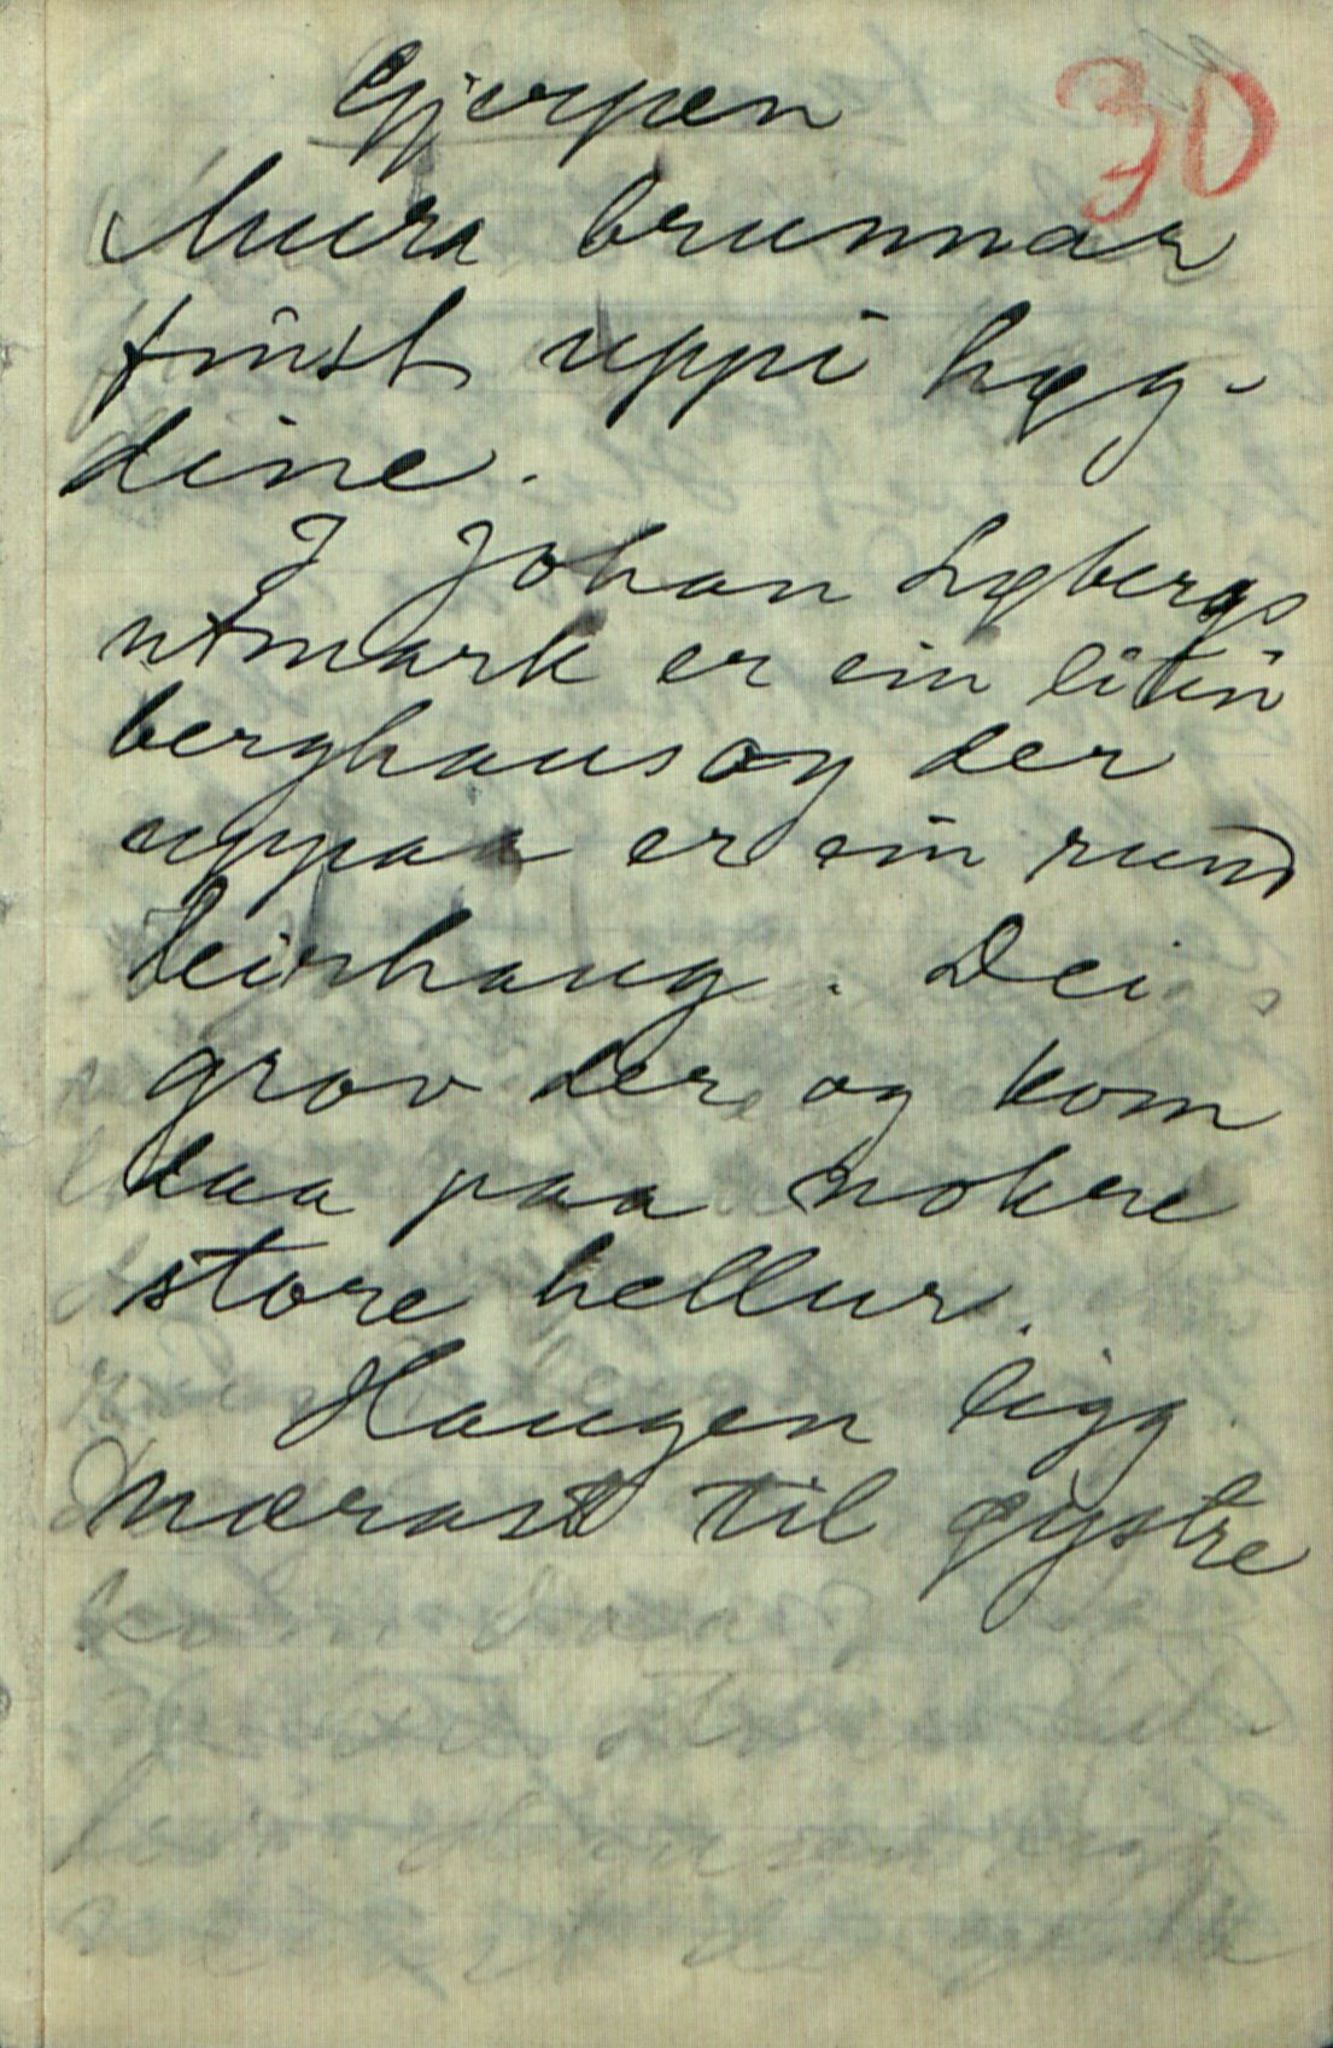 Gjerpen
30
Mura brunnar
finst uppi byg-
dine.
I Johan Lybergs
utmark er ein liten
berghaus og der
uppaa er ein rund
leirhaug. Dei
grov der og kom
daa paa nokre
store hellur.
Haugen ligg
nærast til øystre